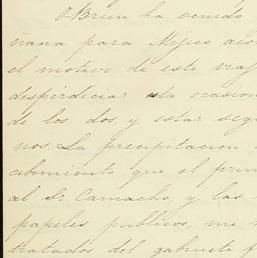 O'Brien ha venido
ñana para Méjico aco
el motivo de este viaj
desperdiciar esta ocasion
de los dos, y estar segu
nos. La precipitacion
cibimiento que el prim
al Sr Camacho, y las
papeles publicos, me
tratados del gabinete f